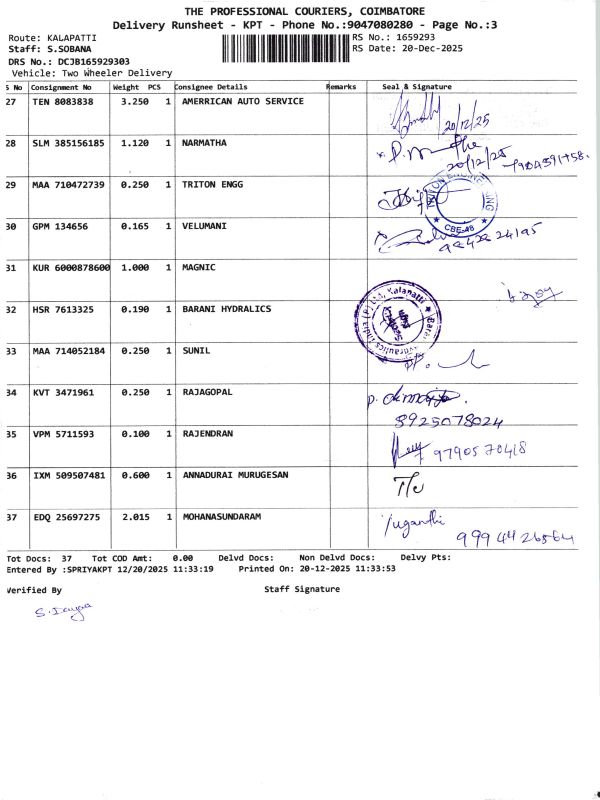 THE PROFESSIONAL COURIERS, COIMBATORE
Delivery Runsheet - KPT - Phone No.:9047080280 - Page No.:3
Route: KALAPATTI
RS No.: 1659293
Staff: S.SOBANA
RS Date: 20-Dec-2025
DRS No.: DCJB165929303
Vehicle: Two Wheeler Delivery
S No Consignment No Weight PCS Consignee Details Remarks Seal & Signature
27 TEN 8083838 3.250 1 AMERRICAN AUTO SERVICE
20/12/25
28 SLM 385156185 1.120 1 NARMATHA
20/12/25
29 MAA 710472739 0.250 1 TRITON ENGG
CBE-48
30 GPM 134656 0.165 1 VELUMANI
31 KUR 6000878600 1.000 1 MAGNIC
32 HSR 7613325 0.190 1 BARANI HYDRALICS
33 MAA 714052184 0.250 1 SUNIL
34 KVT 3471961 0.250 1 RAJAGOPAL
8925078024
35 VPM 5711593 0.100 1 RAJENDRAN
9790570418
36 IXM 509507481 0.600 1 ANNADURAI MURUGESAN
37 EDQ 25697275 2.015 1 MOHANASUNDARAM
Yuganthi
9994426564
Tot Docs: 37 Tot COD Amt: 0.00 Delvd Docs: Non Delvd Docs: Delvy Pts:
Entered By :SPRIYAKPT 12/20/2025 11:33:19 Printed On: 20-12-2025 11:33:53
Verified By Staff Signature